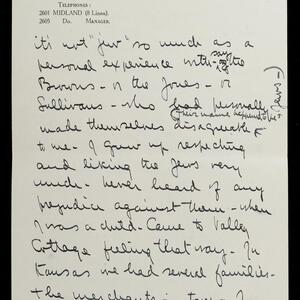 TELEPHONES:
2601 MIDLAND (8 Lines).
2605 Do. MANAGER.
it's not "jew" so much as a
personal experience with say the
Browns - or the Jones - or
Sullivans - who had personally
(Their names happened to be Jews -)
made themselves disagreeable
to me - I grew up respecting
and liking the Jews very
much - never heard of any
prejudice against them - when
I was a child - Came to Valley
Cottage feeling that way. In
Kansas we had several families -
the merchants in town